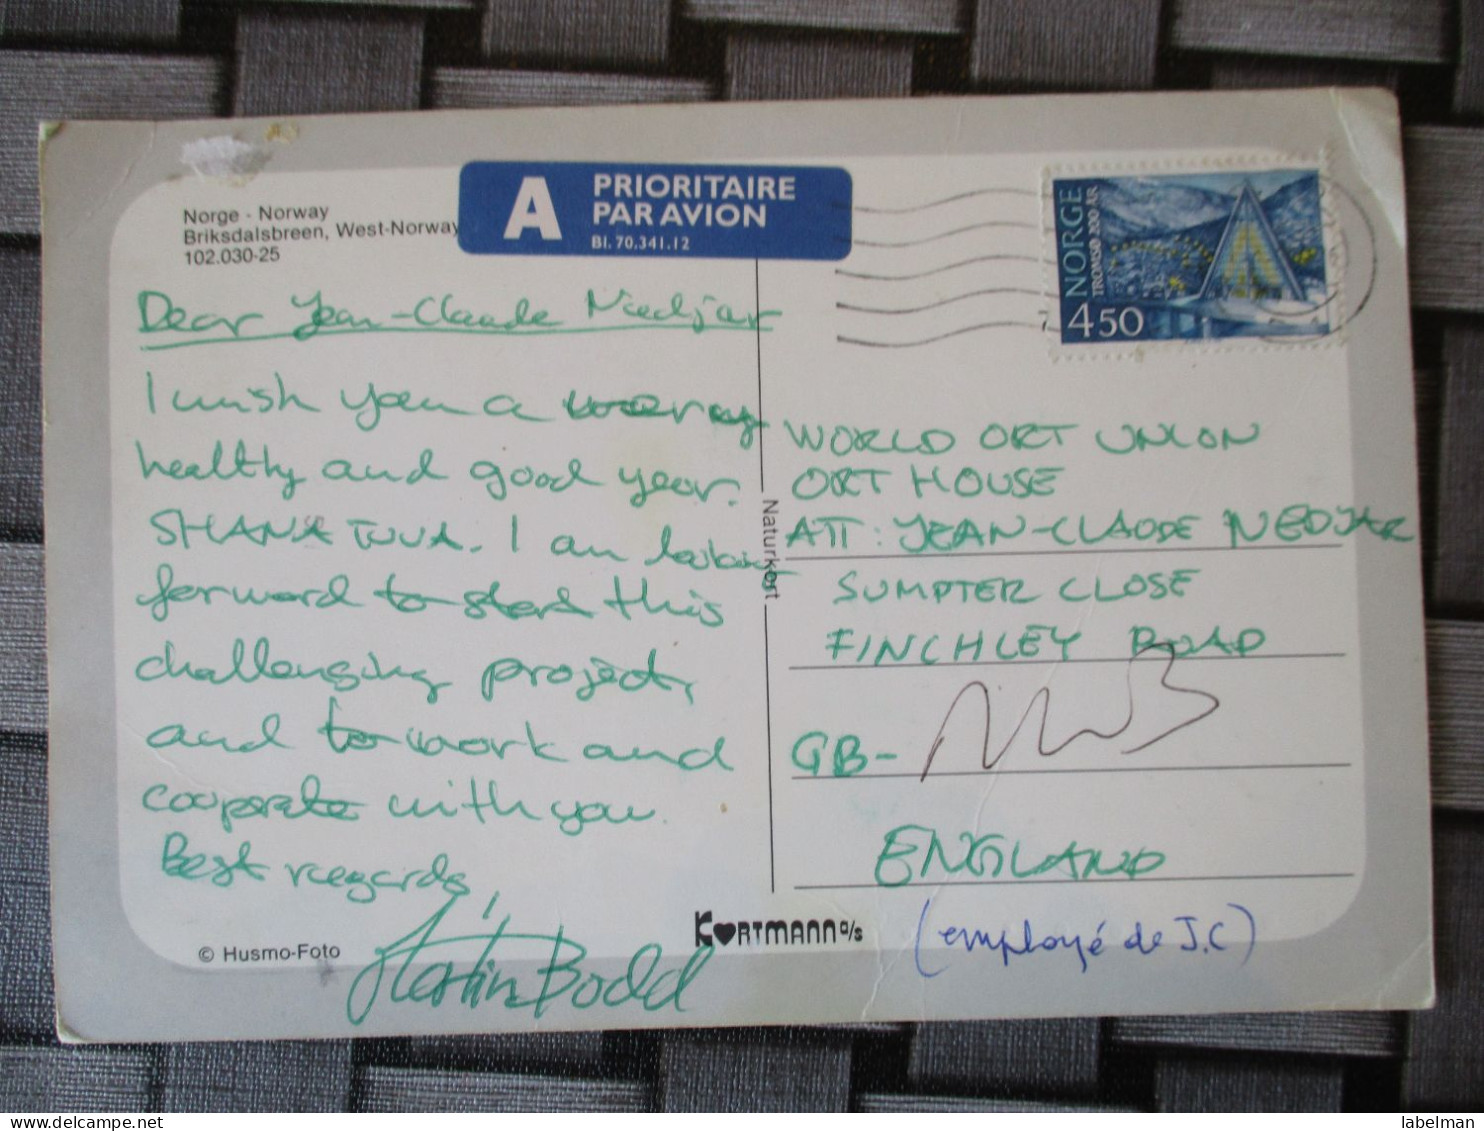 Norge - Norway
Briksdalsbreen, West-Norway
102.030-25
A PRIORITAIRE
PAR AVION
Bl. 70.341.12
NORGE
TROMSØ 200 ÅR
450
Dear Jean-Claude Nedjar
I wish you a very
healthy and good year.
SHANA TUVA. I am looking
forward to start this
challenging project,
and to work and
cooperate with you.
Best regards,
Bodd
Naturkort
WORLD ORT UNION
ORT HOUSE
ATT: JEAN-CLAUDE NEDJAR
SUMPTER CLOSE
FINCHLEY ROAD
GB-
ENGLAND
(employé de J.C)
© Husmo-Foto
KORTMANN a/s
labelman